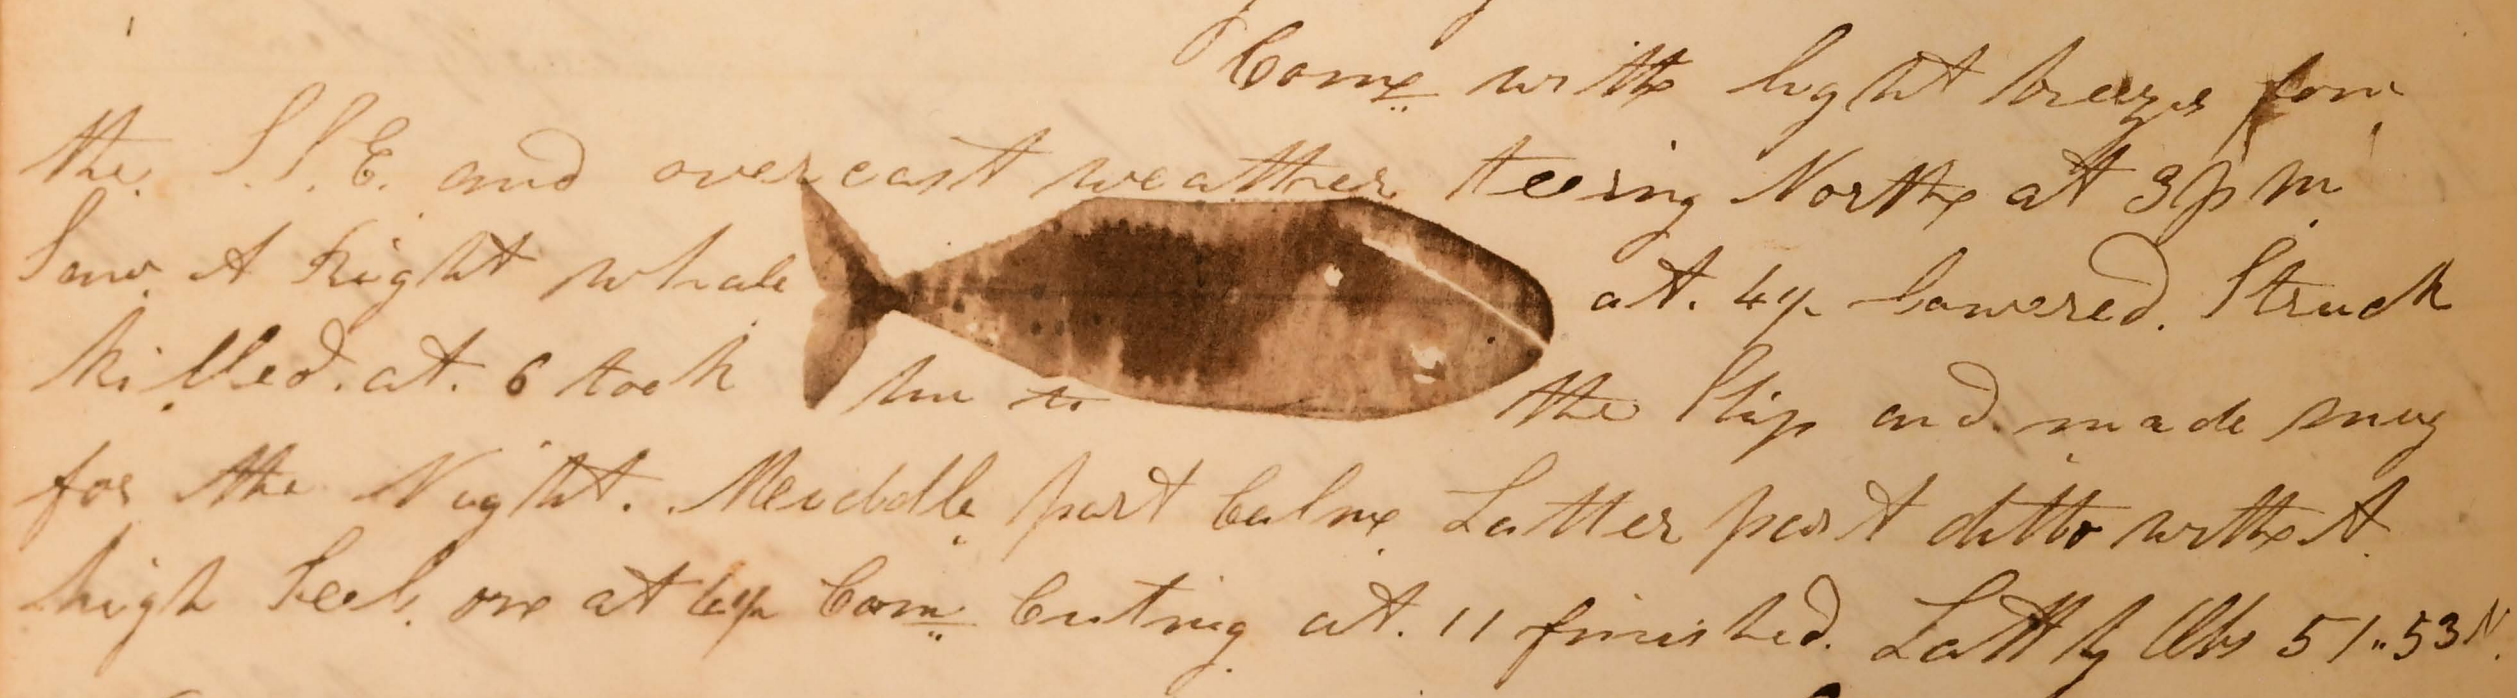 Comᵉ with light breezes from
the S.S.E. and overcast weather steering North at 3 p m
Saw A Right whale at. 4 lowered. Struck
killed. at. 6 took him to the Ship and made snug
for the Night. Meiddle part Calm Latter part ditto with A
high on at Comᵐ Cutting at. 11 finished. Latt by Obs 51..53 N.